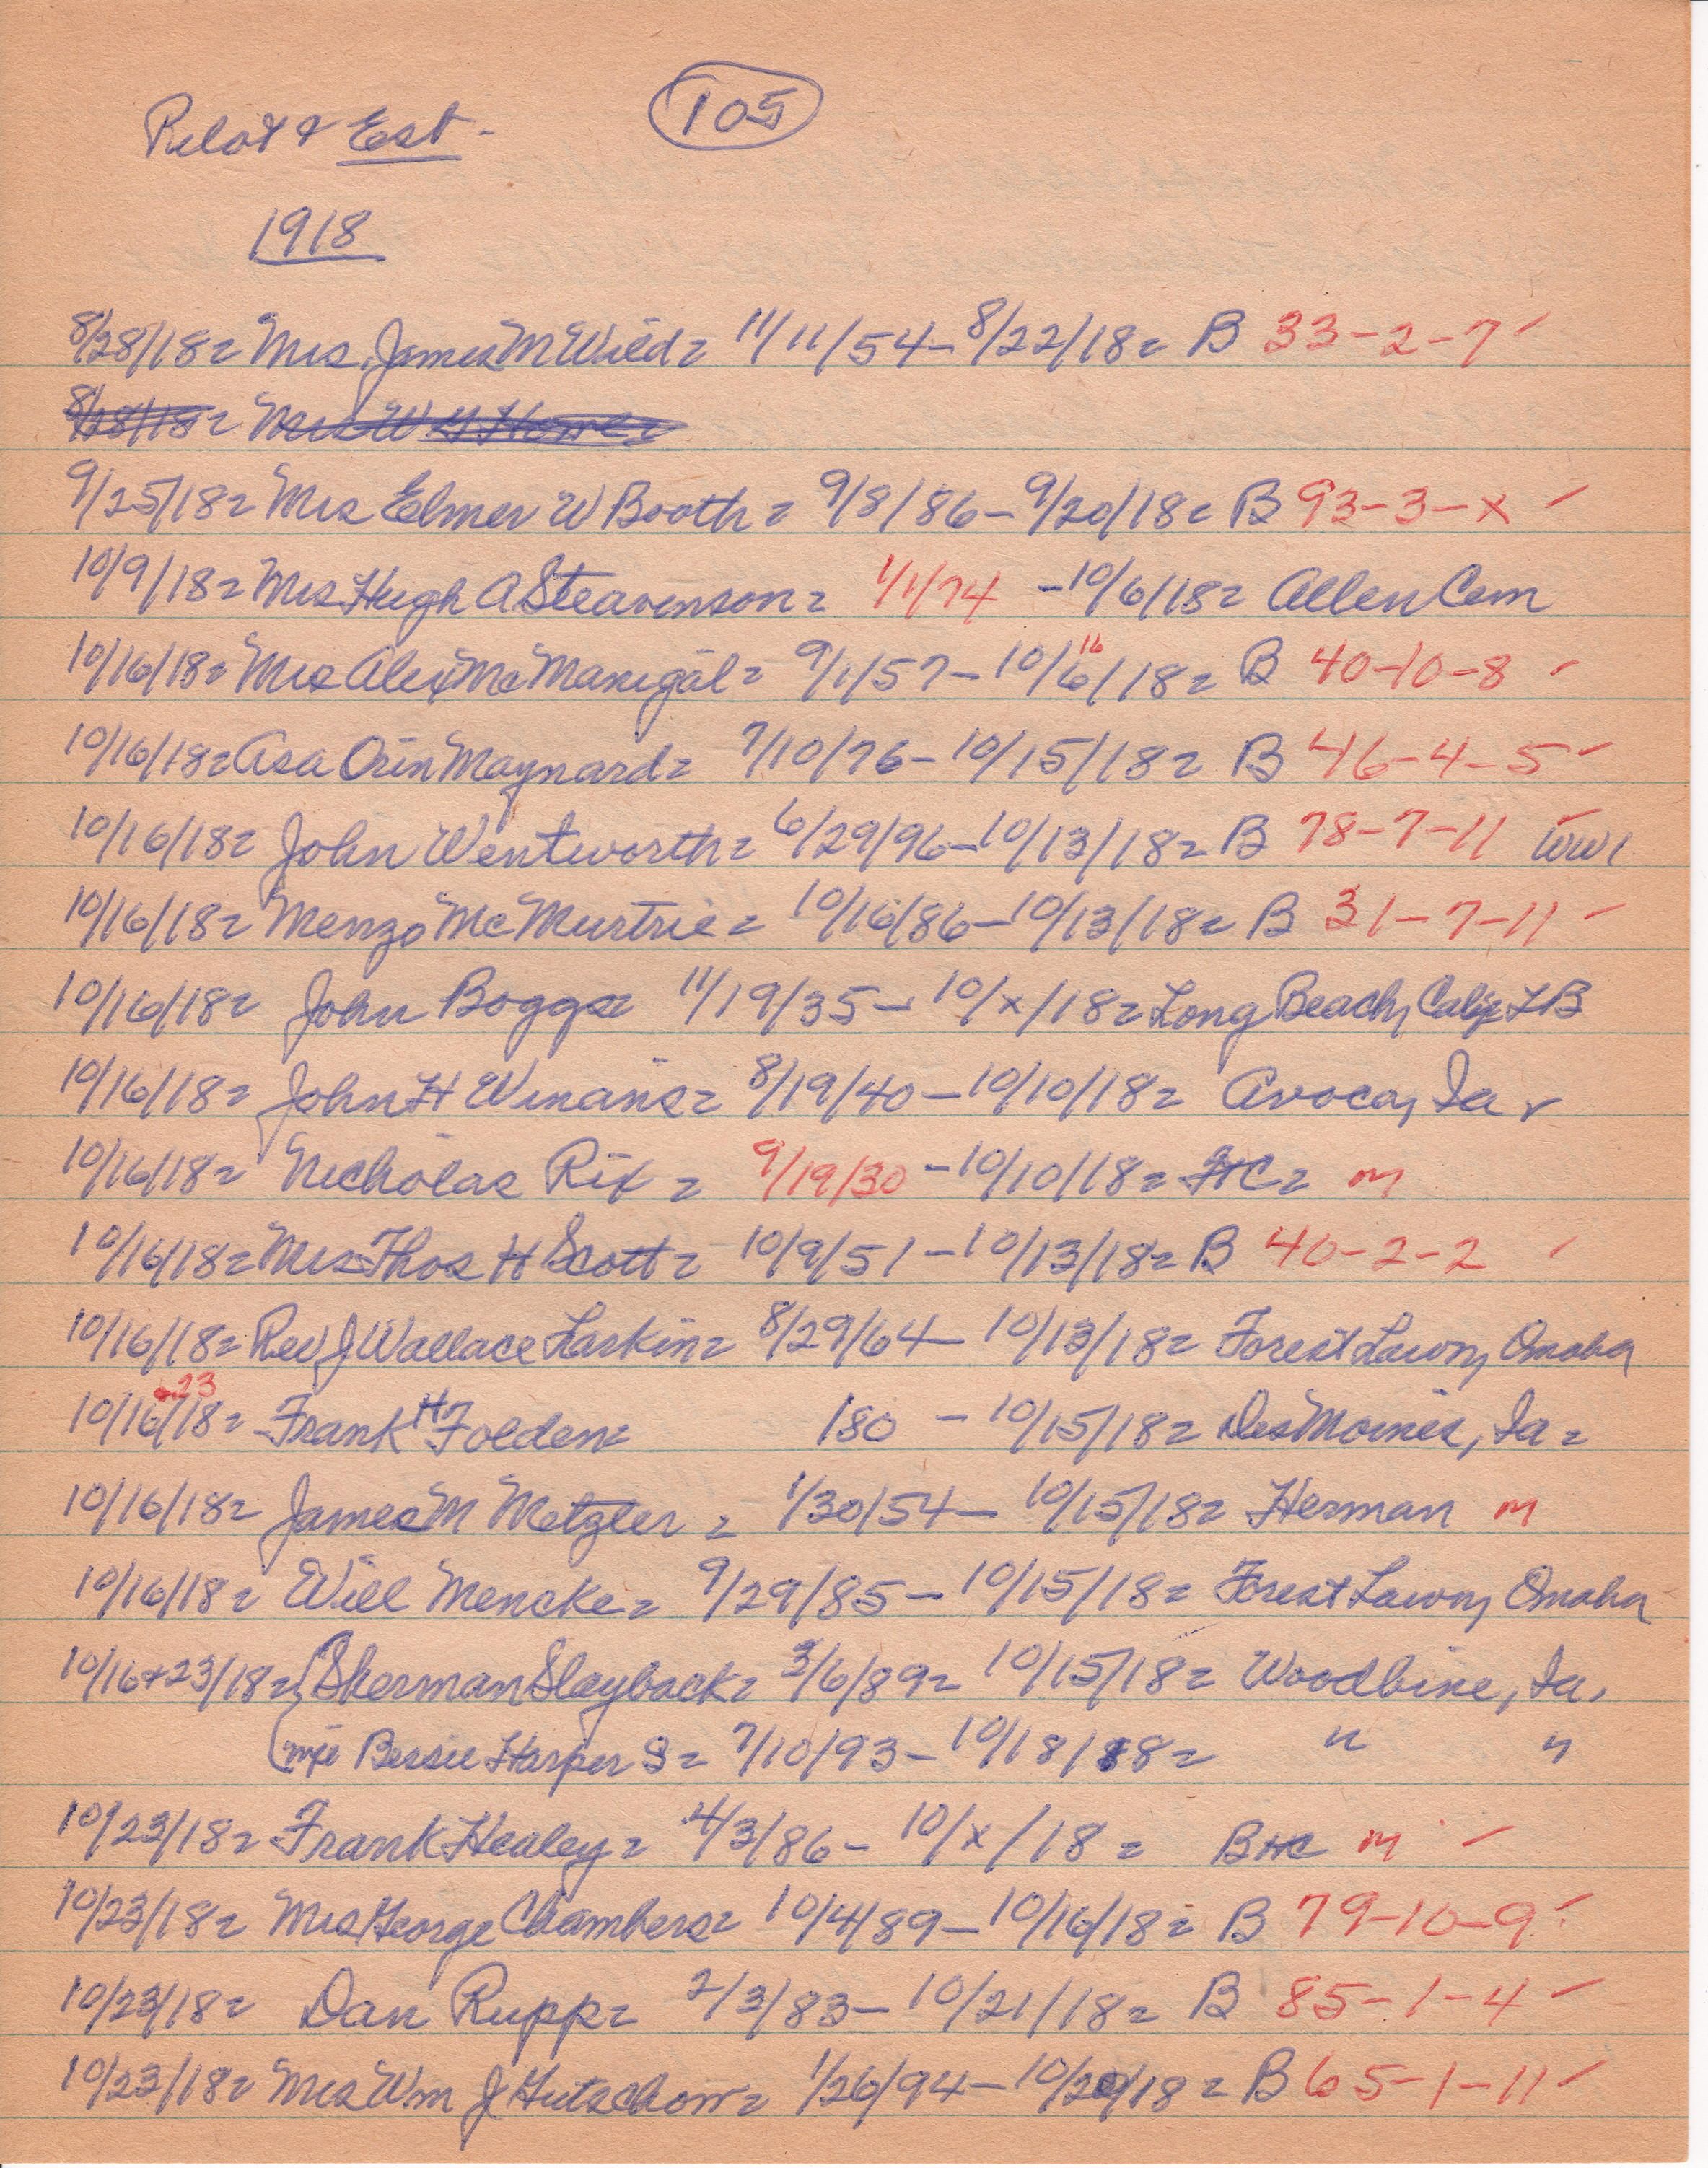 Pilot & Est - 105
1918
8/28/18= Mrs. James M Wild= 11/11/54- 8/22/18= B 33-2-7 ✓
8/28/18= Mrs W H Howe=
9/25/18= Mrs Elmer W Booth= 9/8/86- 9/20/18= B 93-3-x ✓
10/9/18= Mrs Hugh A Steavenson= 1/1/74 -10/6/18= Allen Cem
10/16/18= Mrs Alex McManigal= 9/1/57- 10/6/18= 16 B 40-10-8 ✓
10/16/18= Asa Orin Maynard= 7/10/76- 10/15/18= B 46-4-5 ✓
10/16/18= John Wentworth= 6/29/96- 10/13/18= B 78-7-11 WW1
10/16/18= Menzo McMurtrie= 10/16/86- 10/13/18= B 31-7-11 ✓
10/16/18= John Boggs= 11/19/35- 10/x/18= Long Beach, Calif LB
10/16/18= John H Winans= 8/19/40- 10/10/18= Avoca, Ia ✓
10/16/18= Nicholas Rix= 9/19/30 -10/10/18= HC= m
10/16/18= Mrs Thos H Scott= 10/9/51- 10/13/18= B 40-2-2 ✓
10/16/18= Rev J Wallace Larkin= 8/29/64- 10/13/18= Forest Lawn, Omaha
10/16/18= 23 Frank H Folden= 180 - 10/15/18= Des Moines, Ia=
10/16/18= James M Metzler= 1/30/54- 10/15/18= Herman m
10/16/18= Will Mencke= 9/29/85- 10/15/18= Forest Lawn, Omaha
10/16+23/18= Sherman Slayback= 3/6/89= 10/15/18= Woodbine, Ia.
wife Bessie Harper S= 7/10/93- 10/18/18= " "
10/23/18= Frank Healey= 4/3/86- 10/x/18= B HC m ✓
10/23/18= Mrs George Chambers= 10/4/89- 10/16/18= B 79-10-9 ✓
10/23/18= Dan Rupp= 2/3/83- 10/21/18= B 85-1-4 ✓
10/23/18= Mrs Wm J Gutschow= 1/26/94- 10/20/18= B 65-1-11 ✓